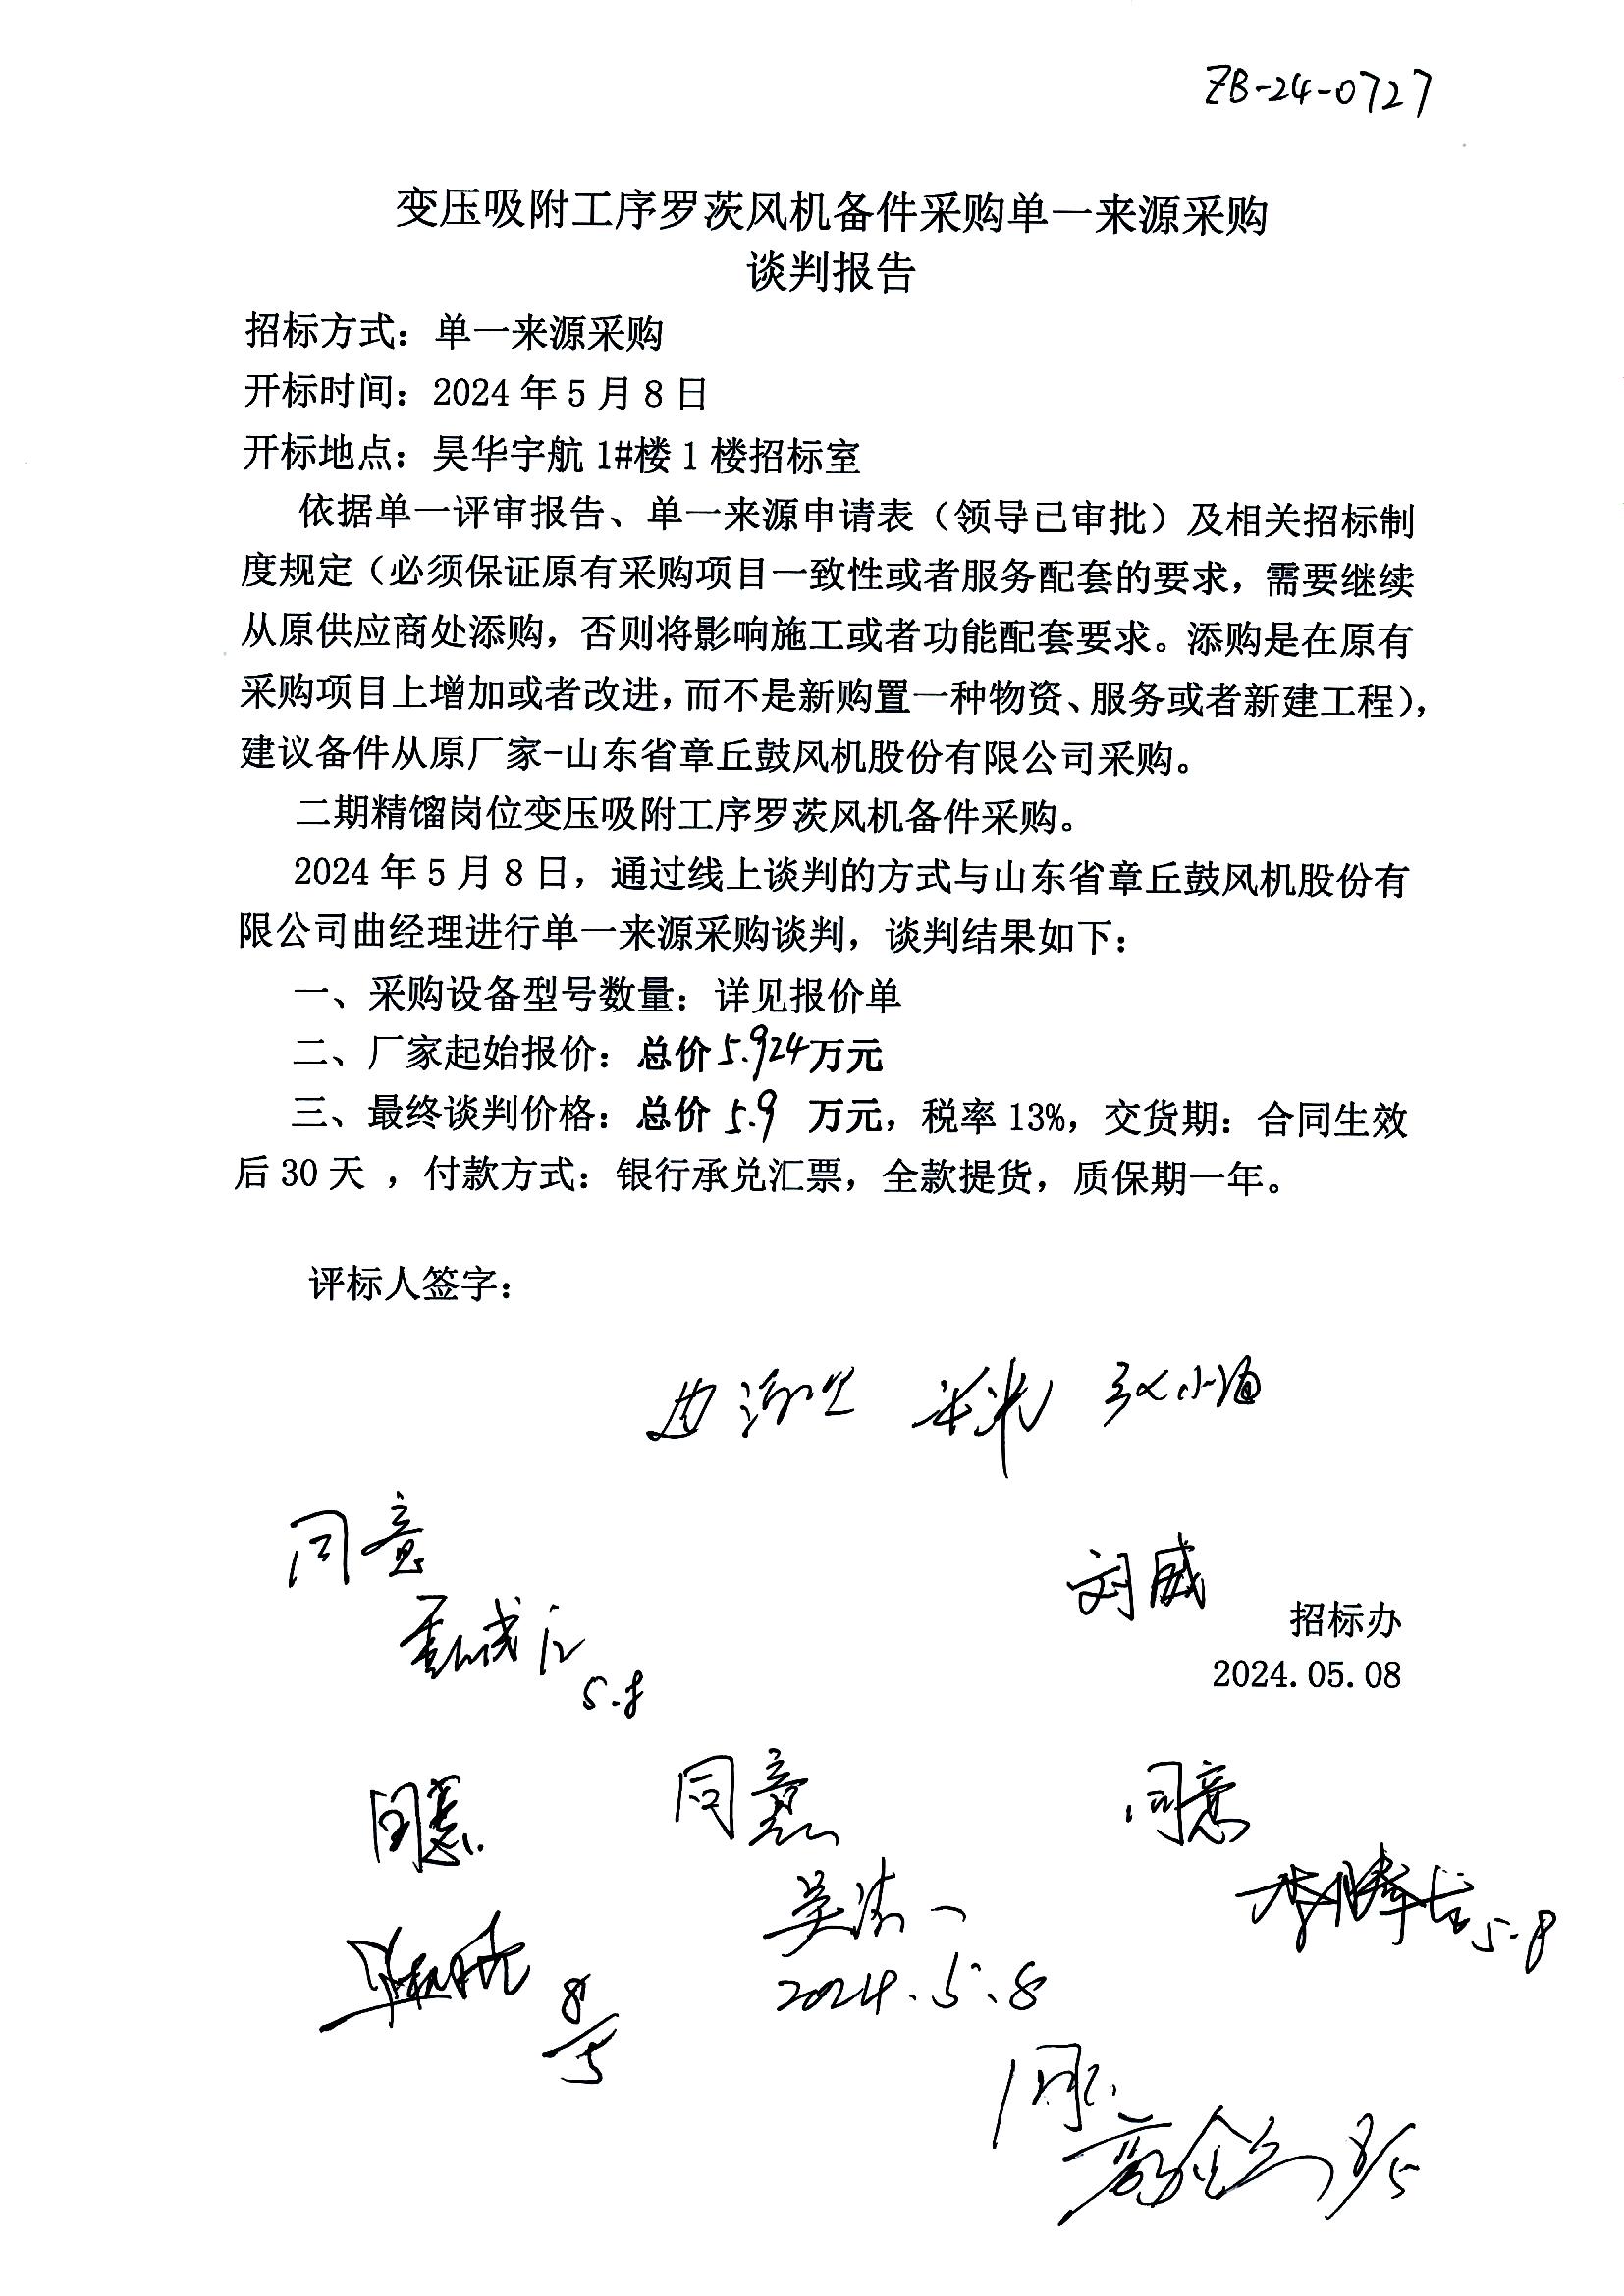 ZB-24-0727
变压吸附工序罗茨风机备件采购单一来源采购
谈判报告
招标方式：单一来源采购
开标时间：2024 年 5 月 8 日
开标地点：昊华宇航 1#楼 1 楼招标室
依据单一评审报告、单一来源申请表（领导已审批）及相关招标制
度规定（必须保证原有采购项目一致性或者服务配套的要求，需要继续
从原供应商处添购，否则将影响施工或者功能配套要求。添购是在原有
采购项目上增加或者改进，而不是新购置一种物资、服务或者新建工程），
建议备件从原厂家-山东省章丘鼓风机股份有限公司采购。
二期精馏岗位变压吸附工序罗茨风机备件采购。
2024 年 5 月 8 日，通过线上谈判的方式与山东省章丘鼓风机股份有
限公司曲经理进行单一来源采购谈判，谈判结果如下：
一、采购设备型号数量：详见报价单
二、厂家起始报价：总价 5.924 万元
三、最终谈判价格：总价 5.9 万元，税率 13%，交货期：合同生效
后 30 天 ，付款方式：银行承兑汇票，全款提货，质保期一年。
评标人签字：
同意
刘威
招标办
5.8
2024.05.08
同意 同意 同意
5.8
2024.5.8
8/5
同意
8/5